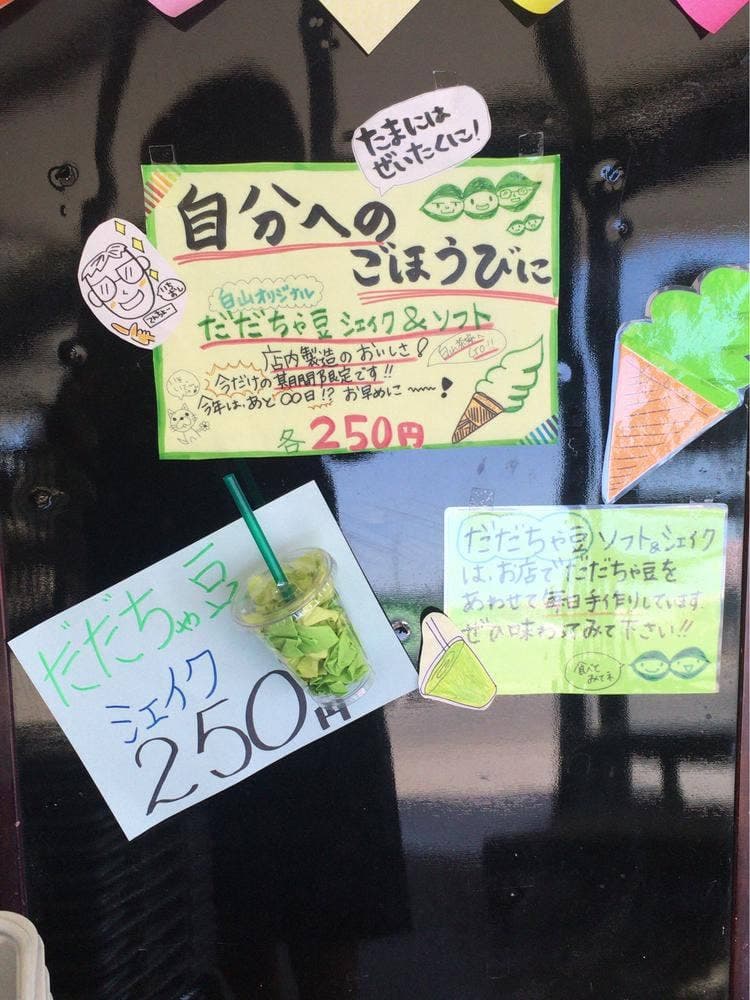 たまには
ぜいたくに!
自分への
ごほうびに
白山オリジナル
だだちゃ豆 シェイク&ソフト
店内製造のおいしさ!
今だけの期間限定です!!
今年は、あと〇〇日!? お早めに〜〜!
各250円
だだちゃ豆
シェイク
250円
だだちゃ豆 ソフト&シェイク
は、お店でだだちゃ豆を
あわせて毎日手作りしています。
ぜひ味わってみて下さい!!
食べて
みてネ